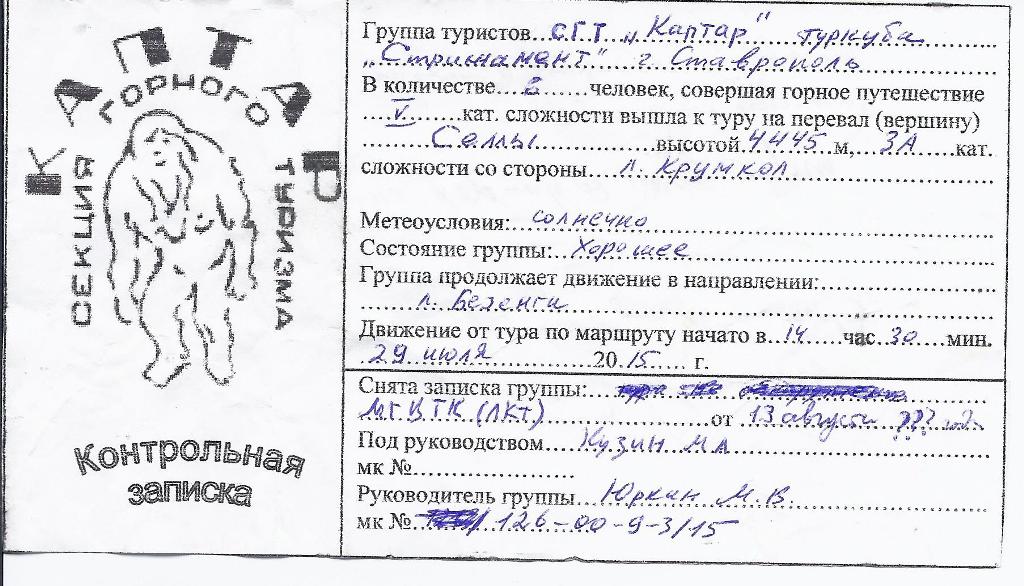 КАПТАР
СЕКЦИЯ ГОРНОГО ТУРИЗМА
Контрольная
записка
Группа туристов С.Г.Т „Каптар" турклуба
„Стрижамент" г. Ставрополь
В количестве 2 человек, совершая горное путешествие
V кат. сложности вышла к туру на перевал (вершину)
Селлы высотой 4445 м, 3А кат.
сложности со стороны л. Крумкол
Метеоусловия: солнечно
Состояние группы: Хорошее
Группа продолжает движение в направлении:
л. Безенги
Движение от тура по маршруту начато в 14 час 30 мин.
29 июля 2015 г.
Снята записка группы:
МГВТК (ЛКТ) от 13 августа ??? года
Под руководством Кузин МА
мк №
Руководитель группы Юркин М.В.
мк № 126-00-9-3/15